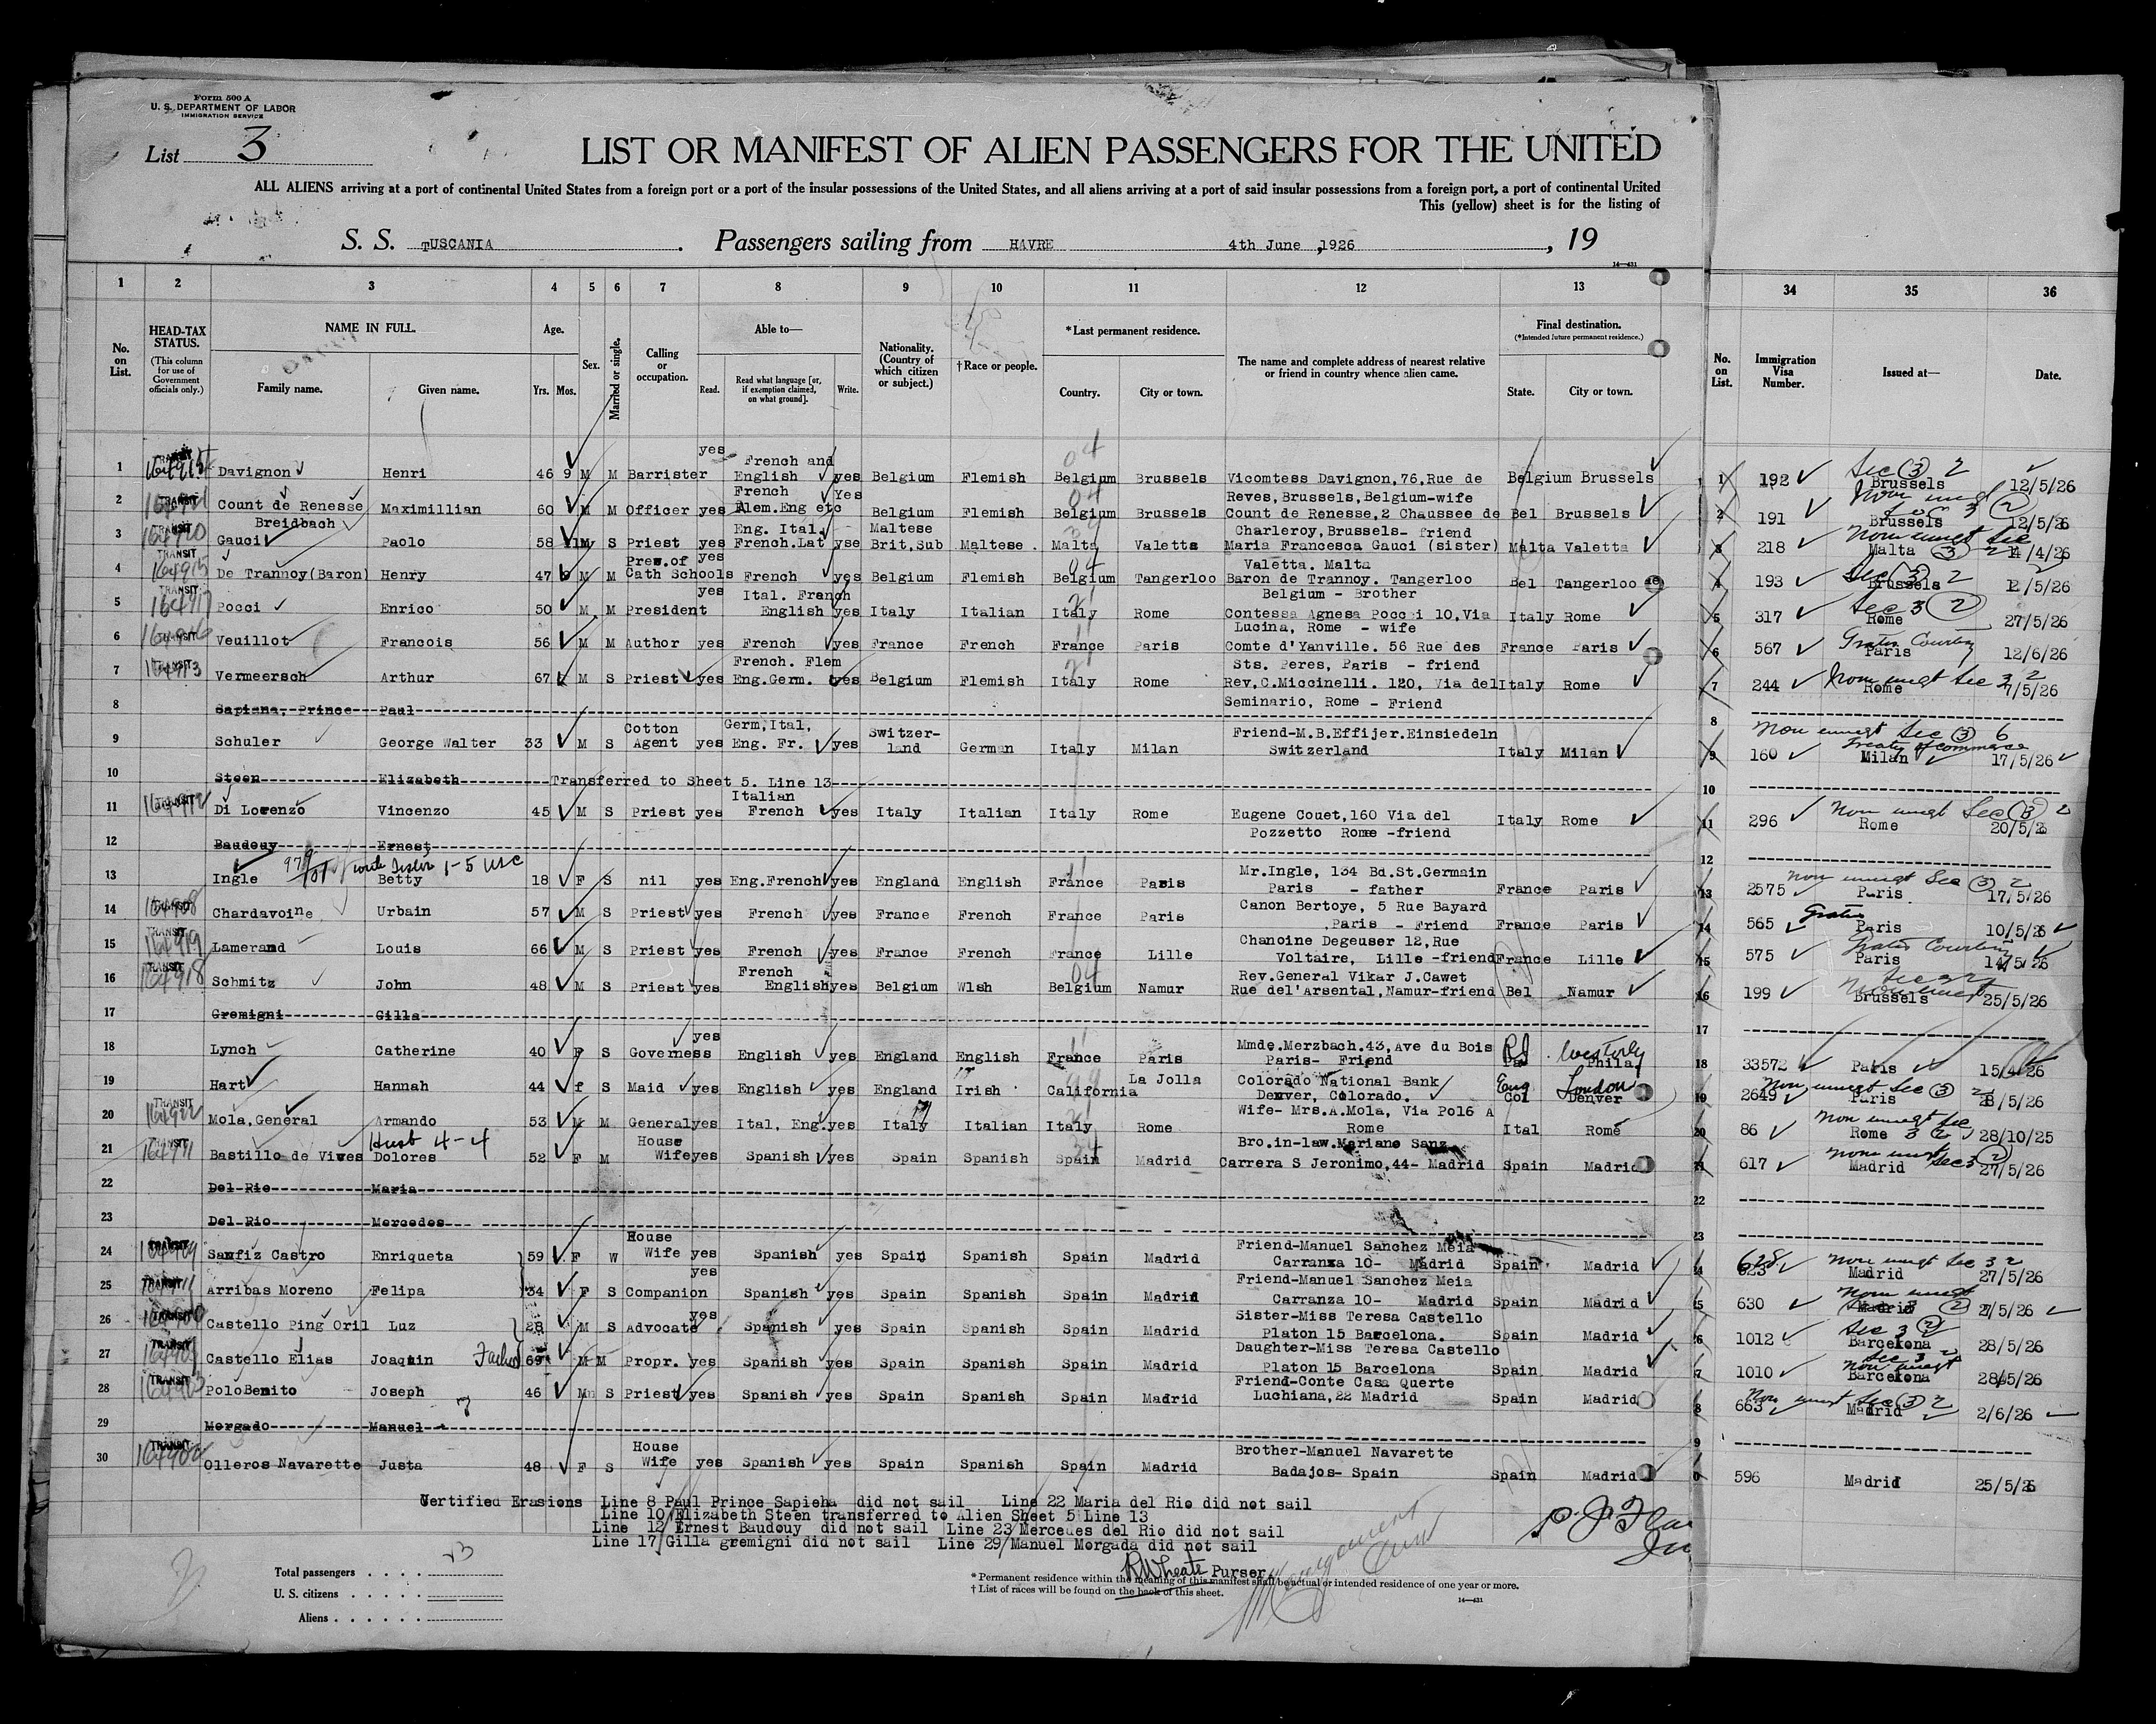 Form 500 A
U. S. DEPARTMENT OF LABOR
IMMIGRATION SERVICE
List 3
LIST OR MANIFEST OF ALIEN PASSENGERS FOR THE UNITED
ALL ALIENS arriving at a port of continental United States from a foreign port or a port of the insular possessions of the United States, and all aliens arriving at a port of said insular possessions from a foreign port, a port of continental United
This (yellow) sheet is for the listing of
S. S. TUSCANIA . Passengers sailing from HAVRE 4th June ,1926 , 19
14—431
1 2 3 4 5 6 7 8 9 10 11 12 13 34 35 36
No. on List. HEAD-TAX STATUS. (This column for use of Government officials only.) NAME IN FULL. Family name. Given name. Age. Yrs. Mos. Sex. Married or single. Calling or occupation. Able to— Read. Read what language [or, if exemption claimed, on what ground]. Write. Nationality. (Country of which citizen or subject.) †Race or people. *Last permanent residence. Country. City or town. The name and complete address of nearest relative or friend in country whence alien came. Final destination. (*Intended future permanent residence.) State. City or town. No. on List. Immigration Visa Number. Issued at— Date.
1 TRANSIT Davignon Henri 46 9 M M Barrister yes French and English yes Belgium Flemish Belgium Brussels Vicomtess Davignon,76,Rue de Belgium Brussels 1 192 Sec 3 2 Brussels 12/5/26
2 TRANSIT Count de Renesse Maximillian 60 M M Officer yes French Alem.Eng etc Yes Belgium Flemish Belgium Brussels Reves,Brussels,Belgium-wife Count de Renesse,2 Chaussee de Bel Brussels 2 191 Brussels 12/5/26
Breidbach
3 TRANSIT Gauci Paolo 58 11 M S Priest yes Eng. Ital. French.Lat yse Maltese Brit,Sub Maltese. Malta Valetta Charleroy,Brussels- friend Maria Francesca Gauci (sister) Malta Valetta 3 218 Malta 3 14/4/26
4 TRANSIT De Trannoy(Baron) Henry 47 9 M M Pres.of Cath Schools yes French yes Belgium Flemish Belgium Tangerloo Valetta. Malta Baron de Trannoy. Tangerloo Bel Tangerloo 4 193 Sec 3 2 Brussels 12/5/26
5 TRANSIT Pocci Enrico 50 M M President yes Ital. French English yes Italy Italian Italy Rome Belgium - Brother Contessa Agnesa Pocci 10,Via Italy Rome 5 317 Sec 3 2 Rome 27/5/26
6 TRANSIT Veuillot Francois 56 M M Author yes French yes France French France Paris Lucina, Rome - wife Comte d'Yanville. 56 Rue des France Paris 6 567 Paris 12/6/26
7 TRANSIT Vermeersch Arthur 67 M S Priest yes French. Flem Eng.Germ. yes Belgium Flemish Italy Rome Sts. Peres, Paris - friend Rev,C.Miccinelli. 120, Via del Italy Rome 7 244 Non immgt Sec 3 2 Rome 7/5/26
8 Sapiana, Prince Paul Seminario, Rome - Friend 8
9 Schuler George Walter 33 M S Cotton Agent yes Germ,Ital, Eng. Fr. yes Switzer-land German Italy Milan Friend-M.B.Effijer.Einsiedeln Switzerland Italy Milan 9 160 Non immgt Sec 3 6 Treaty of commerce Milan 17/5/26
10 Steen Elizabeth Transferred to Sheet 5. Line 13 10
11 TRANSIT Di Lorenzo Vincenzo 45 M S Priest yes Italian French yes Italy Italian Italy Rome Eugene Couet,160 Via del Pozzetto Rome -friend Italy Rome 11 296 Non immgt Sec 3 2 Rome 20/5/26
12 Baudouy Ernest 12
13 Ingle Betty 18 F S nil yes Eng.French yes England English France Paris Mr.Ingle, 134 Bd.St.Germain Paris - father France Paris 13 2575 Non immgt Sec 3 2 Paris 17/5/26
14 TRANSIT Chardavoine Urbain 57 M S Priest yes French yes France French France Paris Canon Bertoye, 5 Rue Bayard Paris - Friend France Paris 14 565 Gratis Paris 10/5/26
15 TRANSIT Lamerand Louis 66 M S Priest yes French yes France French France Lille Chanoine Degeuser 12,Rue Voltaire, Lille -friend France Lille 15 575 Paris 14/5/26
16 TRANSIT Schmitz John 48 M S Priest yes French English yes Belgium Wlsh Belgium Namur Rev.General Vikar J.Cawet Rue del'Arsental,Namur-friend Bel Namur 16 199 Brussels 25/5/26
17 Gremigni Gilla 17
18 Lynch Catherine 40 F S Governess yes English yes England English France Paris Mmde.Merzbach.43,Ave du Bois Paris- Friend RI Westerly Phila. 18 33572 Paris 15/4/26
19 Hart Hannah 44 f S Maid yes English yes England Irish California La Jolla Colorado National Bank Denver, Colorado. Eng London Col Denver 19 2649 Non immgt Sec 3 2 Paris 28/5/26
20 TRANSIT Mola,General Armando 53 M M General yes Ital, Eng. yes Italy Italian Italy Rome Wife- Mrs.A.Mola, Via Pol6 A Rome Ital Rome 20 86 Non immgt Sec 3 2 Rome 28/10/25
Husb 4-4
21 TRANSIT Bastillo de Vives Dolores 52 F M House Wife yes Spanish yes Spain Spanish Spain Madrid Bro.in-law.Mariano Sanz Carrera S Jeronimo,44- Madrid Spain Madrid 21 617 Non immgt Sec 3 2 Madrid 27/5/26
22 Del Rio Maria 22
23 Del Rio Mercedes 23
24 TRANSIT Sanfiz Castro Enriqueta 59 F W House Wife yes Spanish yes Spain Spanish Spain Madrid Friend-Manuel Sanchez Meia Carranza 10- Madrid Spain Madrid 628 Non immgt Sec 3 2 Madrid 27/5/26
25 TRANSIT Arribas Moreno Felipa 34 F S Companion yes Spanish yes Spain Spanish Spain Madrid Friend-Manuel Sanchez Meia Carranza 10- Madrid Spain Madrid 630 Madrid 27/5/26
26 TRANSIT Castello Ping Oril Luz 28 M S Advocate yes Spanish yes Spain Spanish Spain Madrid Sister-Miss Teresa Castello Platon 15 Barcelona. Spain Madrid 1012 Sec 3 2 Barcelona 28/5/26
27 TRANSIT Castello Elias Joaquin Father 69 M M Propr. yes Spanish yes Spain Spanish Spain Madrid Daughter-Miss Teresa Castello Platon 15 Barcelona Spain Madrid 1010 Barcelona 28/5/26
28 TRANSIT PoloBenito Joseph 46 M S Priest yes Spanish yes Spain Spanish Spain Madrid Friend-Conte Casa Querte Luchiana,22 Madrid Spain Madrid 663 Non immgt Sec 3 2 Madrid 2/6/26
29 Morgado Manuel
30 TRANSIT Olleros Navarette Justa 48 F S House Wife yes Spanish yes Spain Spanish Spain Madrid Brother-Manuel Navarette Badajos- Spain Spain Madrid 596 Madrid 25/5/26
Certified Erasions Line 8 Paul Prince Sapieha did not sail Line 22 Maria del Rio did not sail
Line 10/Elizabeth Steen transferred to Alien Sheet 5 Line 13
Line 12/Ernest Baudouy did not sail Line 23/Mercedes del Rio did not sail
Line 17/Gilla gremigni did not sail Line 29/Manuel Morgada did not sail
Purser
Total passengers . . . . 23
U. S. citizens . . . . .
Aliens . . . . . .
* Permanent residence within the meaning of this manifest shall be actual or intended residence of one year or more.
† List of races will be found on the back of this sheet.
14—431